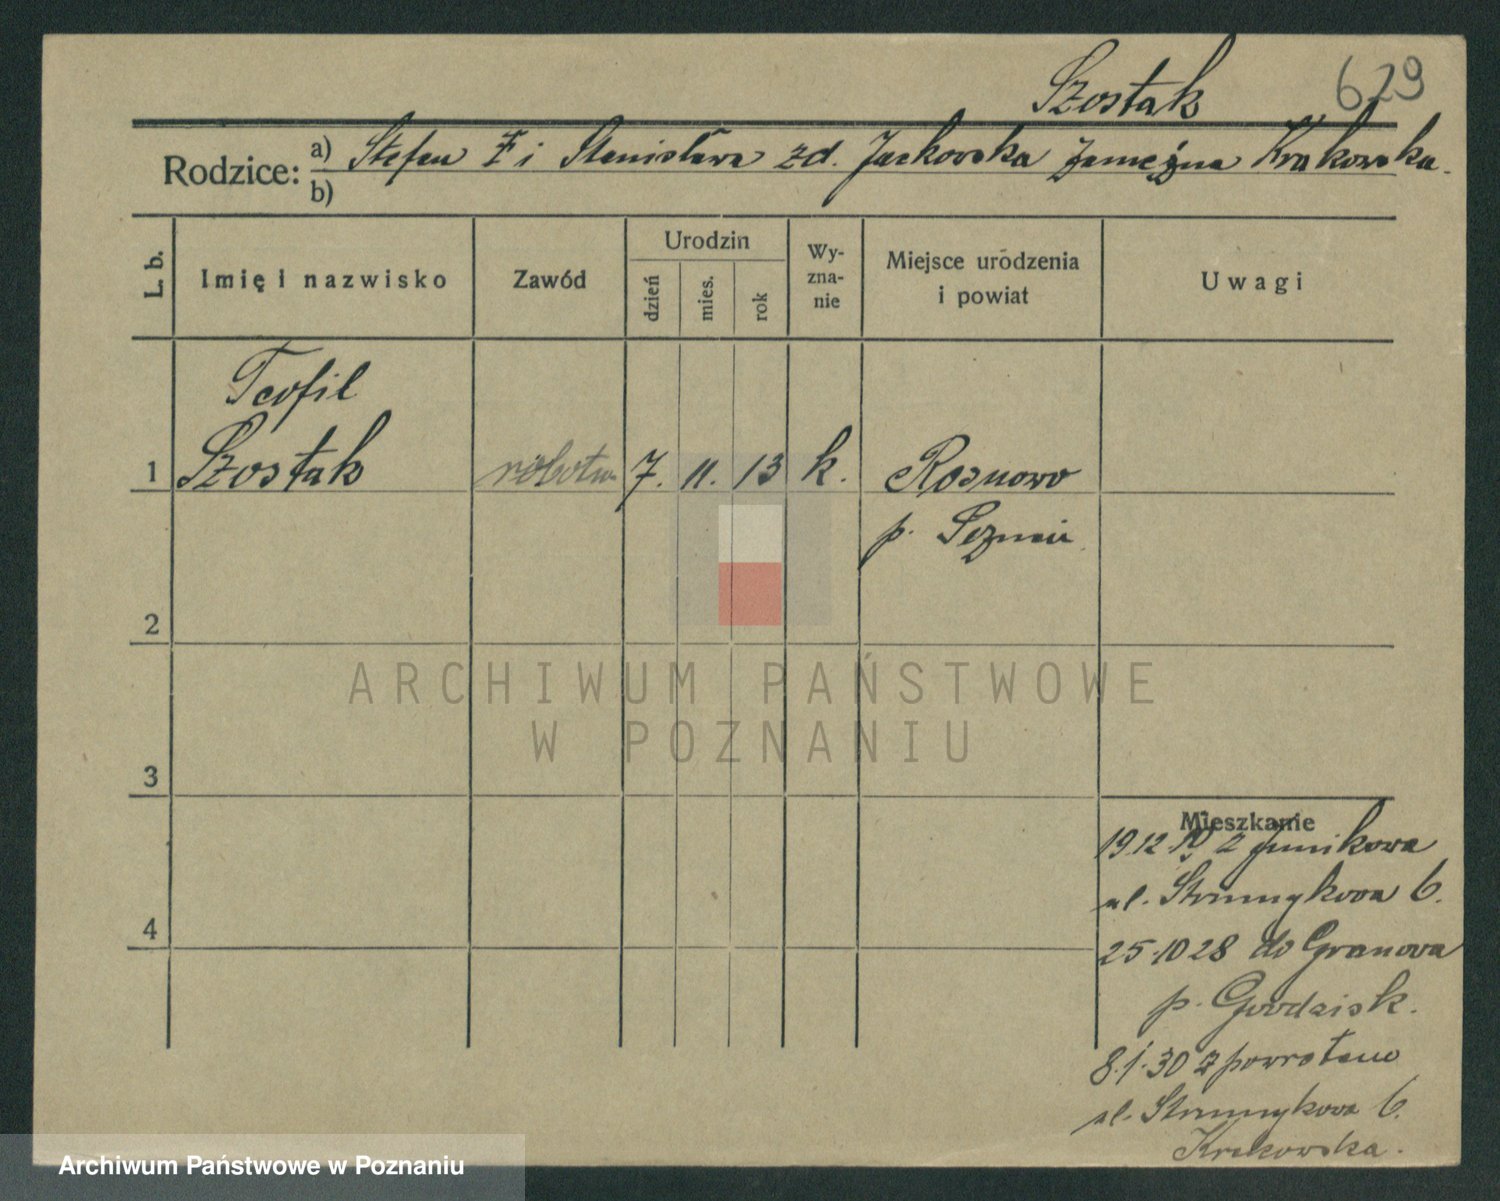 Szostak
629
Rodzice: a) Stefan Ŧ i Stanisława zd. Jackowska zamężna Krakowska.
b)
L. b.
Imię i nazwisko
Zawód
Urodzin
dzień
mies.
rok
Wy-
zna-
nie
Miejsce urodzenia
i powiat
Uwagi
Teofil
1 Szostak robotn. 7. 11. 13 k. Rosnowo
p. Poznań
2
3
Mieszkanie
19.12. z Junikowa
ul. Strumykowa 6.
4
25.10 28 do Granowa
p. Grodzisk.
8.1.30 z powrotem
ul. Strumykowa 6.
Krakowska.
ARCHIWUM PAŃSTWOWE
W POZNANIU
Archiwum Państwowe w Poznaniu